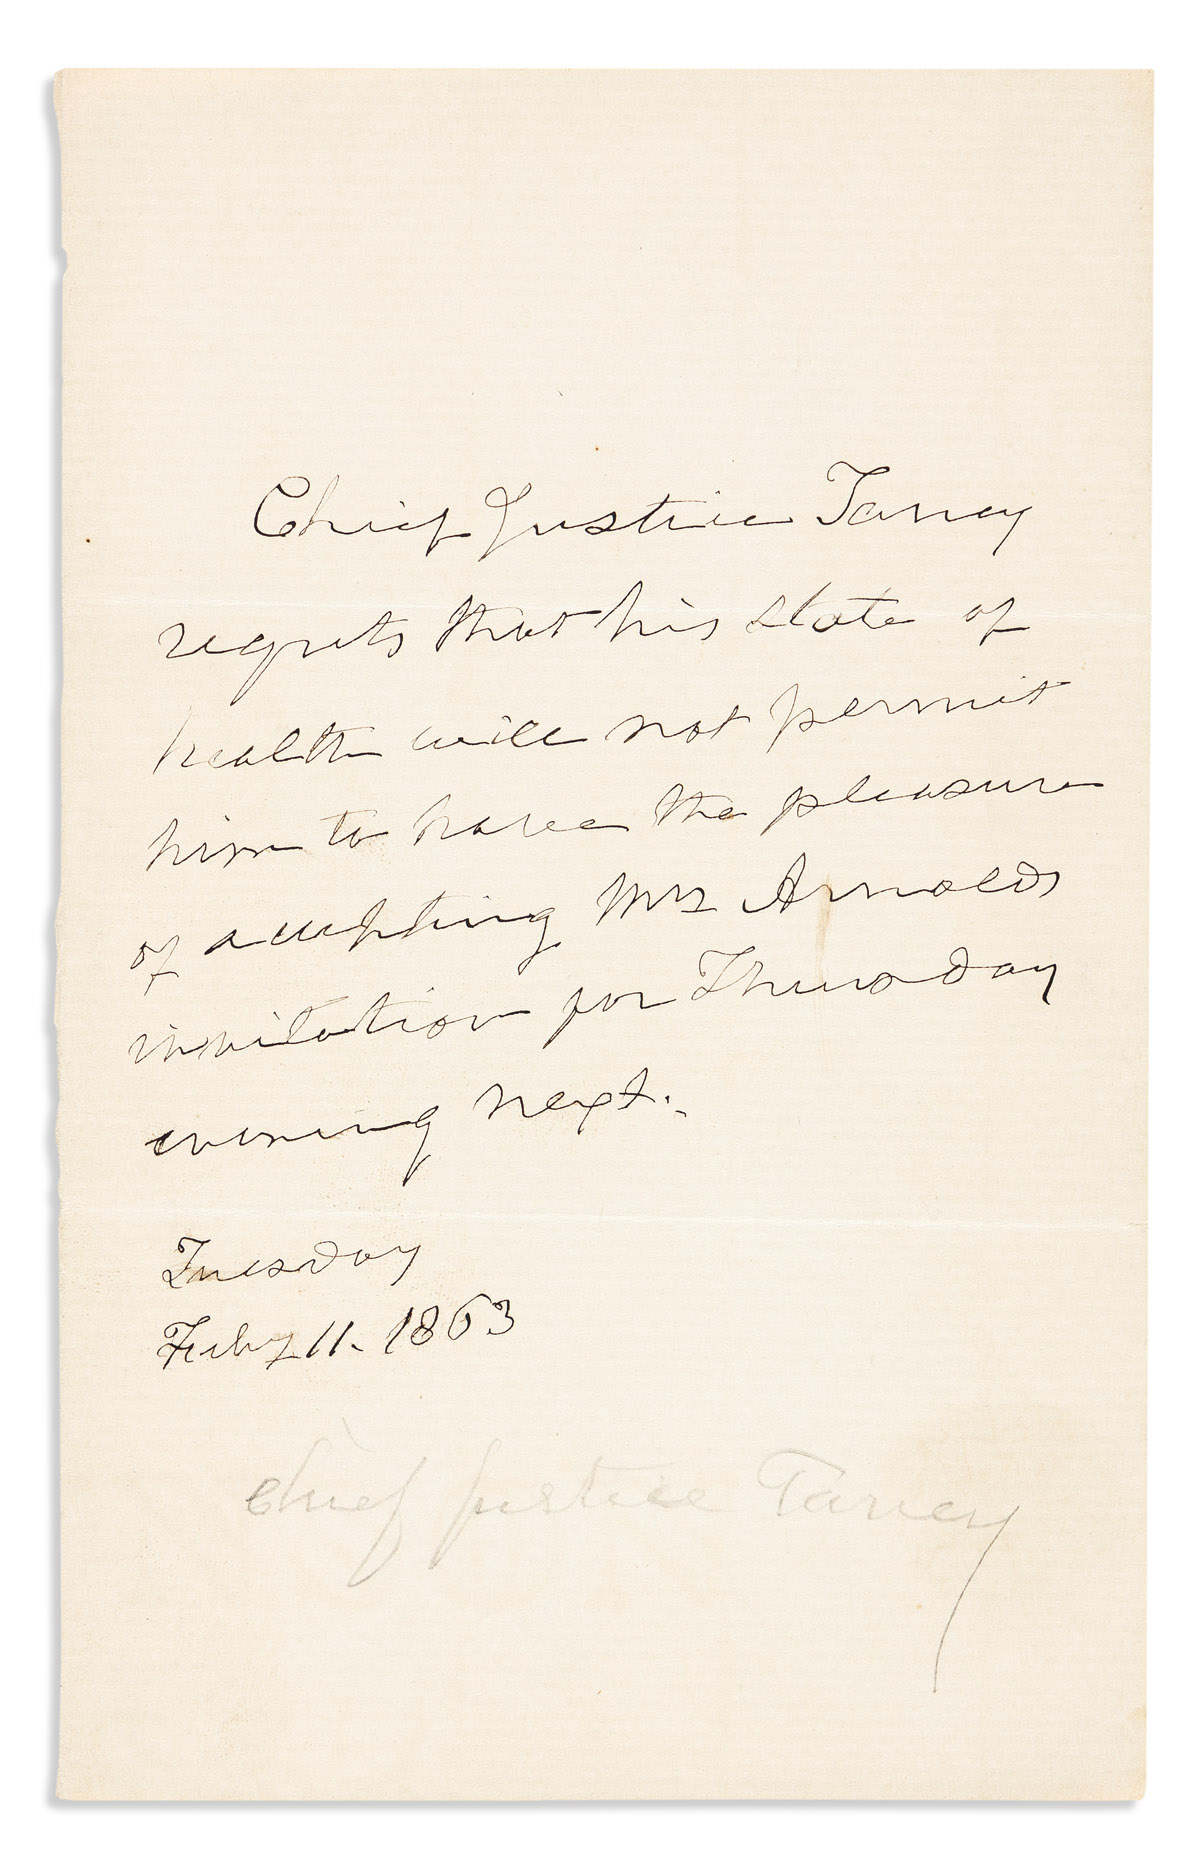 Chief Justice Taney
regrets that his state of
health will not permit
him to have the pleasure
of accepting Mrs Arnolds
invitation for Thursday
evening next.
Tuesday
Feby 11. 1863
Chief Justice Taney